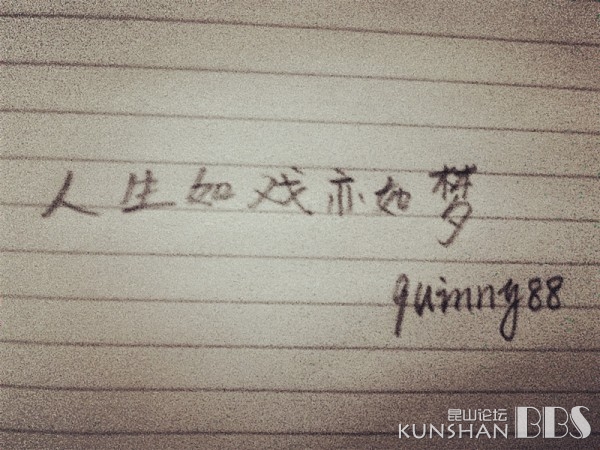 人生如戏亦如梦
quinny88
昆山论坛
KUNSHAN BBS